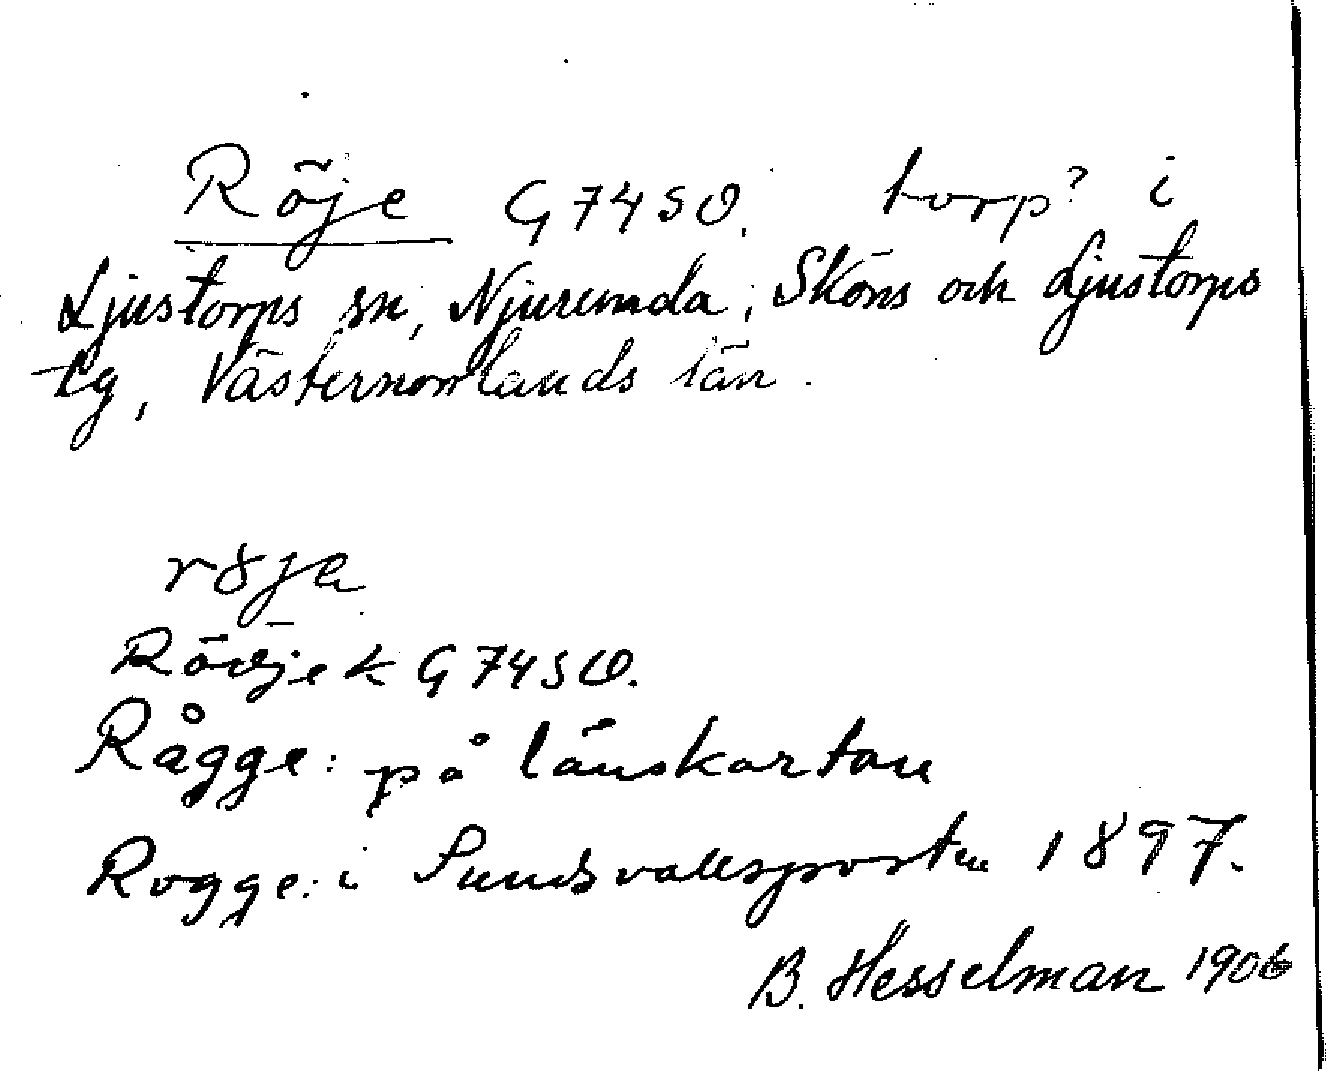 Röje G 74 SO. torp? i
Ljustorps sn, Njurunda, Sköns och Ljustorps
tg, Västernorrlands län.
röja
k G 74 SO.
Rågge: på länskartan
Rogge: i Sundsvallsposten 1897.
B. Hesselman 1906